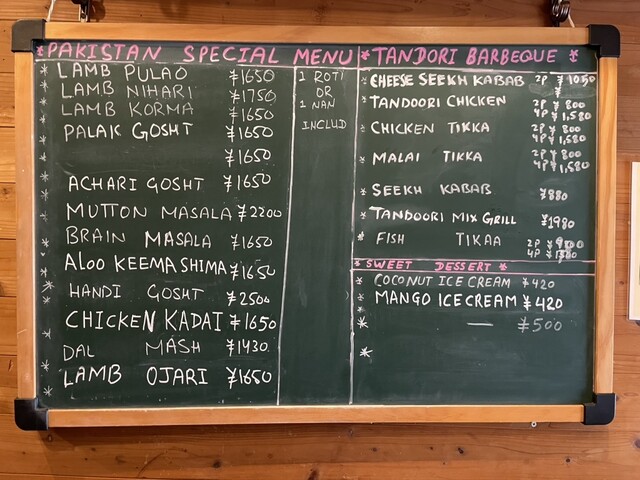 * PAKISTAN SPECIAL MENU
* LAMB PULAO ¥1650
* LAMB NIHARI ¥1750
* LAMB KORMA ¥1650
* PALAK GOSHT ¥1650
* ¥1650
* ACHARI GOSHT ¥1650
* MUTTON MASALA ¥2200
* BRAIN MASALA ¥1650
* ALOO KEEMA SHIMA ¥1650
* HANDI GOSHT ¥2500
* CHICKEN KADAI ¥1650
* DAL MASH ¥1430
* LAMB OJARI ¥1650
1 ROTI
OR
1 NAN
INCLUD
* TANDORI BARBEQUE *
* CHEESE SEEKH KABAB 2P ¥1050
* TANDOORI CHICKEN 2P ¥800
4P ¥1,580
* CHICKEN TIKKA 2P ¥800
4P ¥1,580
* MALAI TIKKA 2P ¥800
4P ¥1,580
* SEEKH KABAB ¥880
* TANDOORI MIX GRILL ¥1980
* FISH TIKAA 2P
4P
* SWEET DESSERT *
* COCONUT ICE CREAM ¥420
* MANGO ICE CREAM ¥420
* — ¥500
*